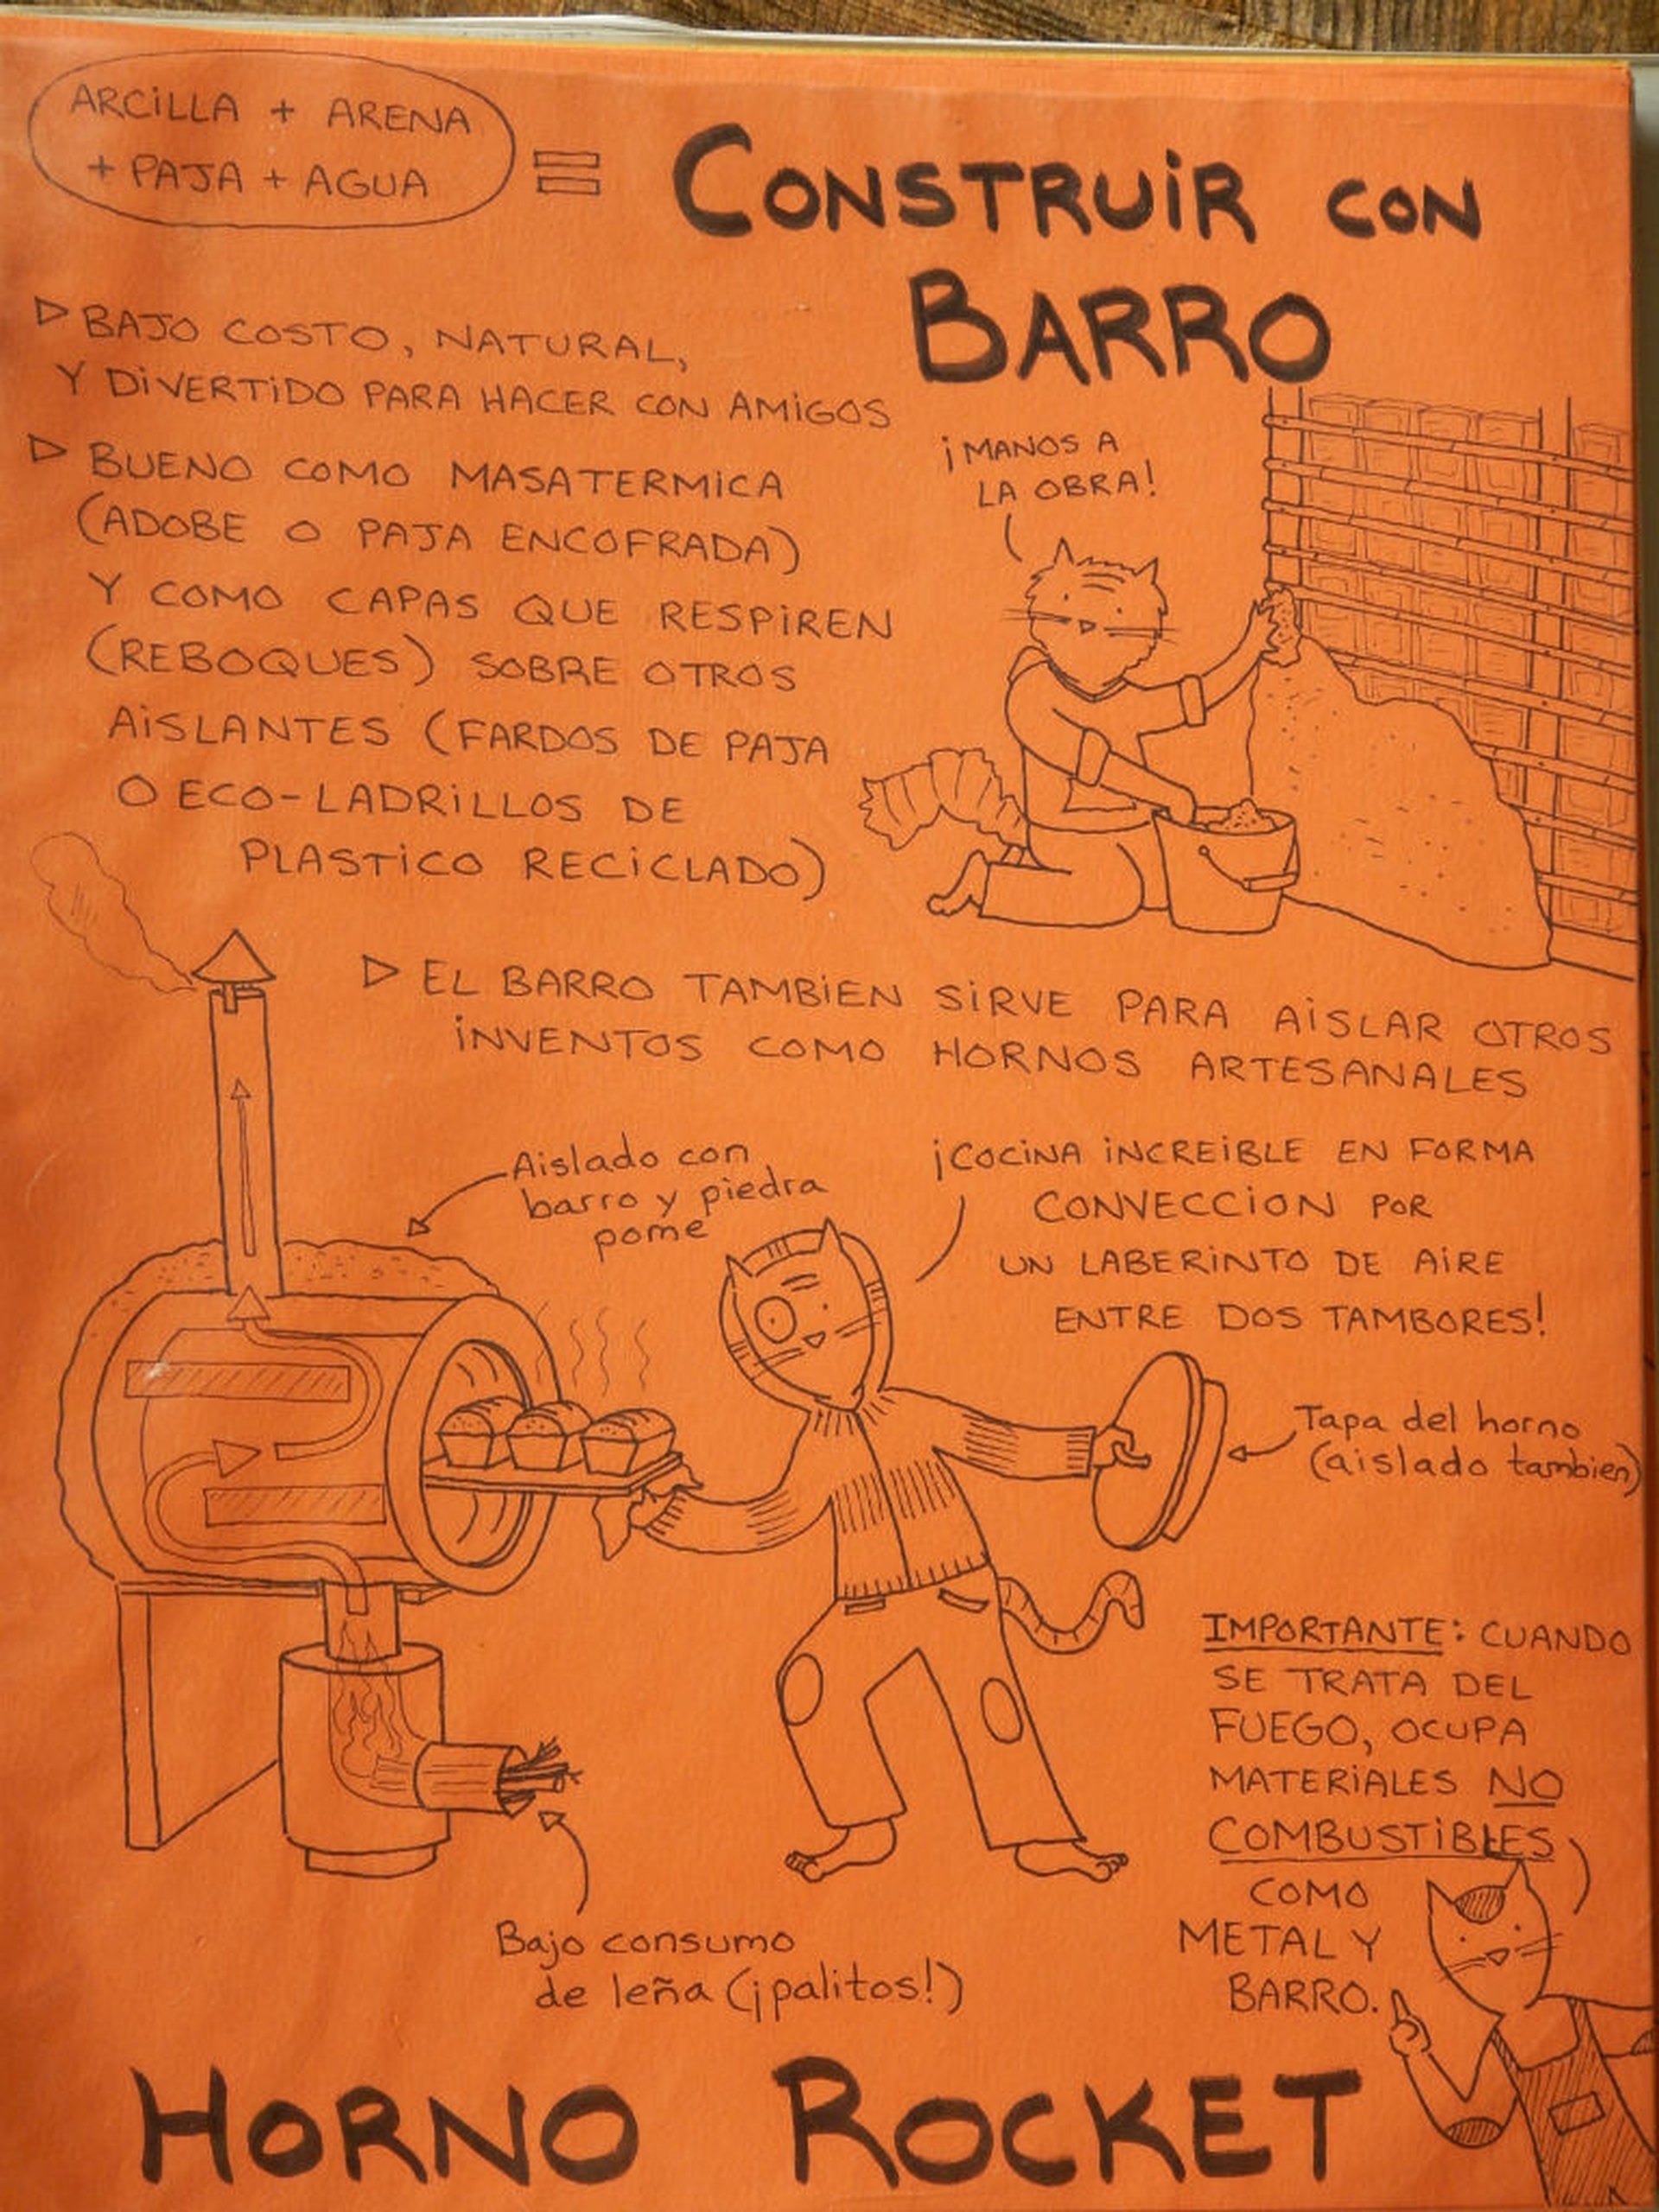 ARCILLA + ARENA
+ PAJA + AGUA
=
CONSTRUIR CON
BARRO
▷ BAJO COSTO, NATURAL,
Y DIVERTIDO PARA HACER CON AMIGOS
▷ BUENO COMO MASATERMICA
(ADOBE O PAJA ENCOFRADA)
Y COMO CAPAS QUE RESPIREN
(REBOQUES) SOBRE OTROS
AISLANTES (FARDOS DE PAJA
O ECO-LADRILLOS DE
PLASTICO RECICLADO)
¡MANOS A
LA OBRA!
▷ EL BARRO TAMBIEN SIRVE PARA AISLAR OTROS
INVENTOS COMO HORNOS ARTESANALES
Aislado con
barro y piedra
pome
¡COCINA INCREIBLE EN FORMA
CONVECCION POR
UN LABERINTO DE AIRE
ENTRE DOS TAMBORES!
Tapa del horno
(aislado tambien)
IMPORTANTE: CUANDO
SE TRATA DEL
FUEGO, OCUPA
MATERIALES NO
COMBUSTIBLES
COMO
METAL Y
BARRO.
Bajo consumo
de leña (¡palitos!)
HORNO ROCKET